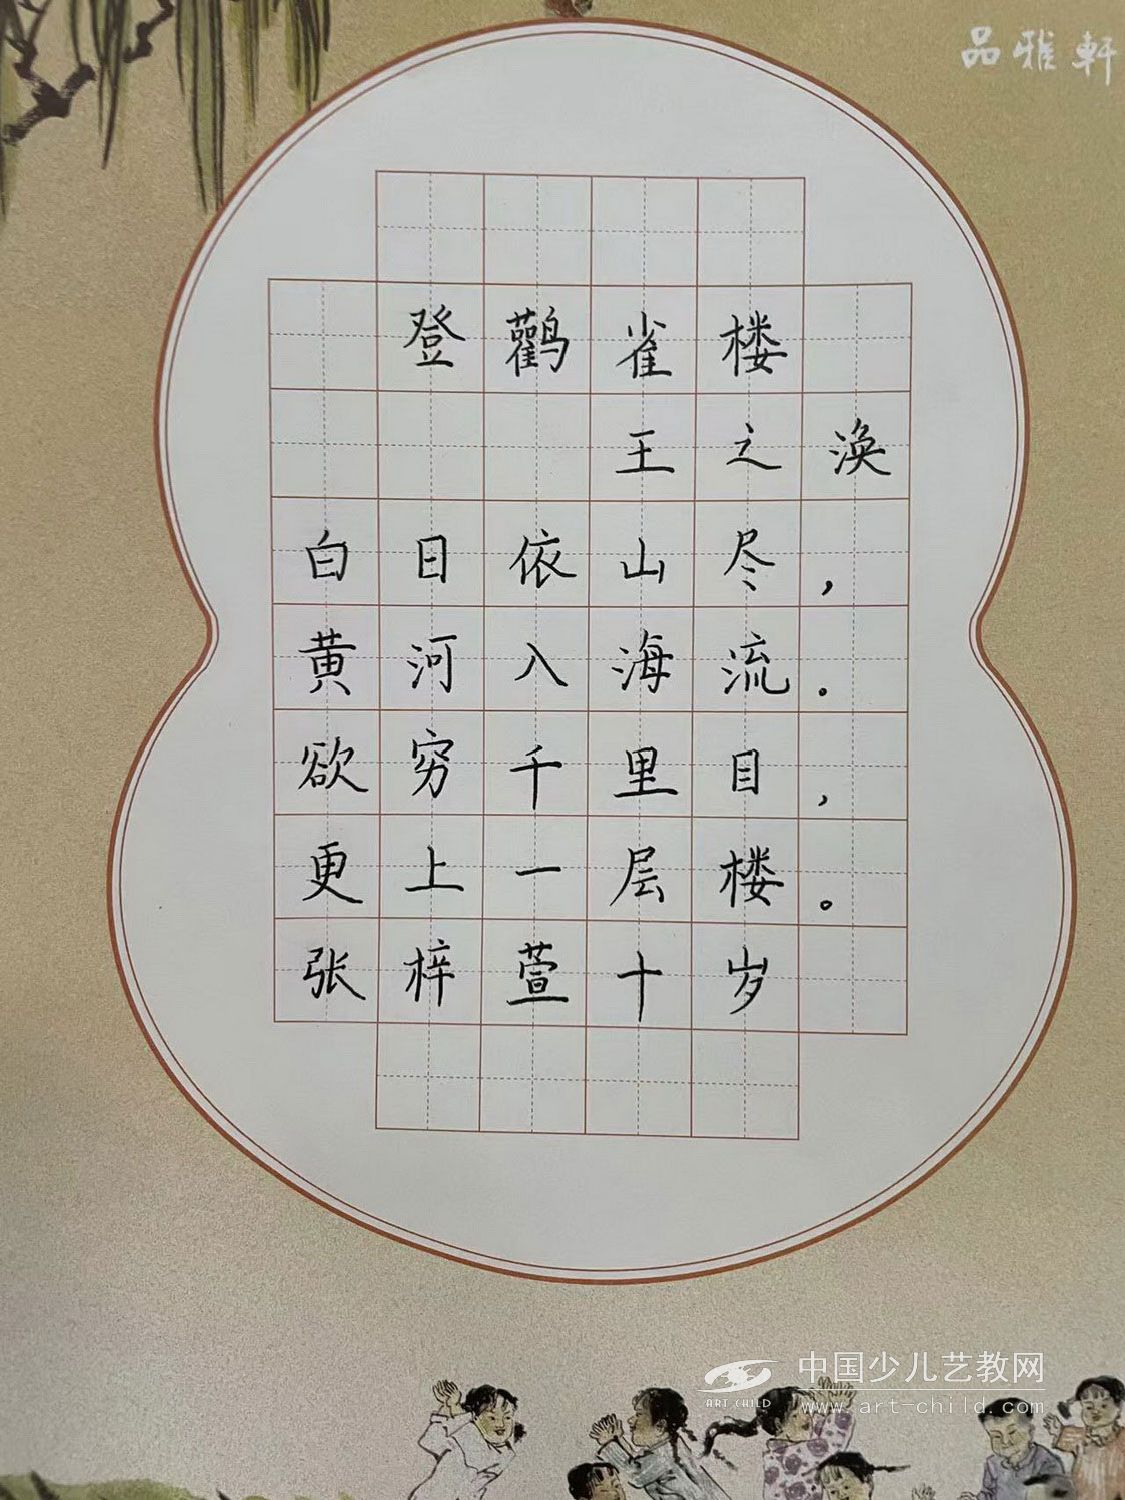 品雅軒
登鹳雀楼
王之涣
白日依山尽，
黄河入海流。
欲穷千里目，
更上一层楼。
张梓萱十岁
中国少儿艺教网
ART CHILD
www.art-child.com